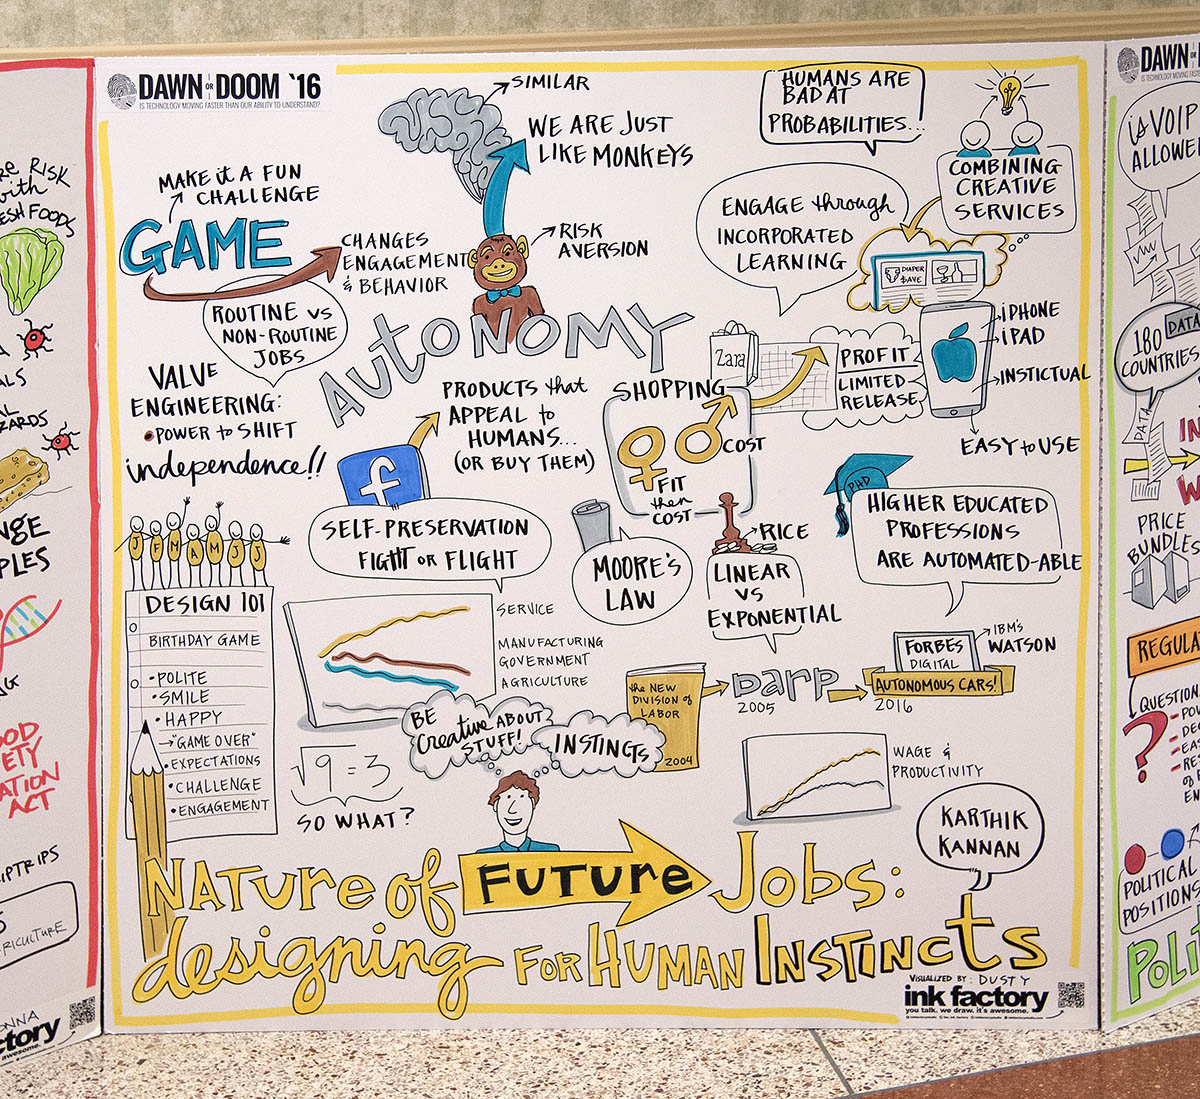 DAWN OR DOOM '16
IS TECHNOLOGY MOVING FASTER THAN OUR ABILITY TO UNDERSTAND?
SIMILAR
WE ARE JUST
LIKE MONKEYS
HUMANS ARE
BAD AT
PROBABILITIES...
COMBINING
CREATIVE
SERVICES
MAKE it A FUN
CHALLENGE
GAME
CHANGES
ENGAGEMENT
& BEHAVIOR
RISK
AVERSION
ENGAGE through
INCORPORATED
LEARNING
DIAPER
$AVE
ROUTINE vs
NON-ROUTINE
JOBS
AUTONOMY
VALVE
ENGINEERING:
•POWER to SHIFT
independence!!
PRODUCTS that
APPEAL to
HUMANS...
(OR BUY THEM)
f
Zara
SHOPPING
COST
FIT
then
COST
PROFIT
LIMITED
RELEASE
iPHONE
iPAD
INSTICTUAL
EASY to USE
SELF-PRESERVATION
FIGHT OR FLIGHT
MOORE'S
LAW
RICE
LINEAR
VS
EXPONENTIAL
PHD
HIGHER EDUCATED
PROFESSIONS
ARE AUTOMATED-ABLE
J F M A M J J
DESIGN 101
BIRTHDAY GAME
•POLITE
•SMILE
•HAPPY
→"GAME OVER"
•EXPECTATIONS
•CHALLENGE
•ENGAGEMENT
SERVICE
MANUFACTURING
GOVERNMENT
AGRICULTURE
the NEW
DIVISION of
LABOR
2004
DARP
2005
FORBES
DIGITAL
IBM'S
WATSON
AUTONOMOUS CARS!
2016
BE
Creative ABOUT
STUFF!
INSTINCTS
√9 = 3
SO WHAT?
WAGE &
PRODUCTIVITY
KARTHIK
KANNAN
NATURE of FUTURE JOBS:
designing FOR HUMAN INSTINCTS
VISUALIZED BY: DUSTY
ink factory
you talk. we draw. it's awesome.
RISK
with
FOODS
ACT
DAWN
is VOIP
180
COUNTRIES
DATA
DATA
PRICE
BUNDLES
?
POLITICAL
POSITIONS